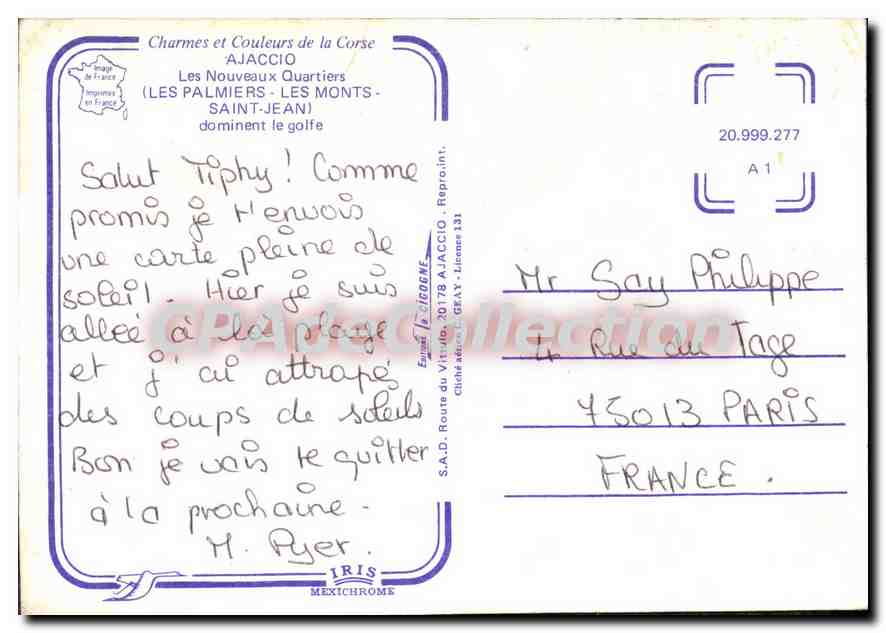 Charmes et Couleurs de la Corse
AJACCIO
Les Nouveaux Quartiers
(LES PALMIERS - LES MONTS -
SAINT-JEAN)
dominent le golfe
Image
de France
Imprimée
en France
Salut Tiphy! Comme
promis je t'envois
une carte pleine de
soleil. Hier je suis
allée à la plage
et j'ai attrapés
des coups de soleils
Bon je vais te quitter
à la prochaine -
M. Pyer.
IRIS
MEXICHROME
Editions "la CIGOGNE"
S.A.D. Route du Vittulo, 20178 AJACCIO. Repro.int.
Cliché aérien GRAY - Licence 131
20.999.277
A 1
Mr Say Philippe
4 Rue du Tage
75013 PARIS
FRANCE.
CPAdeCollection